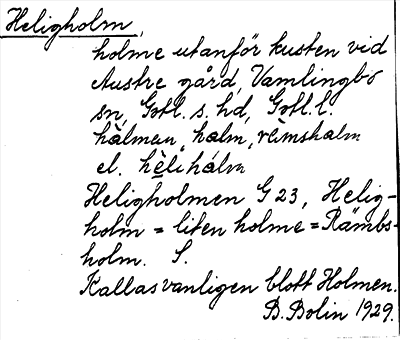 Heligholm,
holme utanför kusten vid
Austre gård, Vamlingbo
sn, Gotl. s. hd, Gotl. l.
hàlmen, halm, rẹ̀imshalm
el. hèlihálm
Heligholmen G 23, Helig-
holm = liten holme = Rämbs-
holm. S.
Kallas vanligen blott Holmen.
B. Bolin 1929.